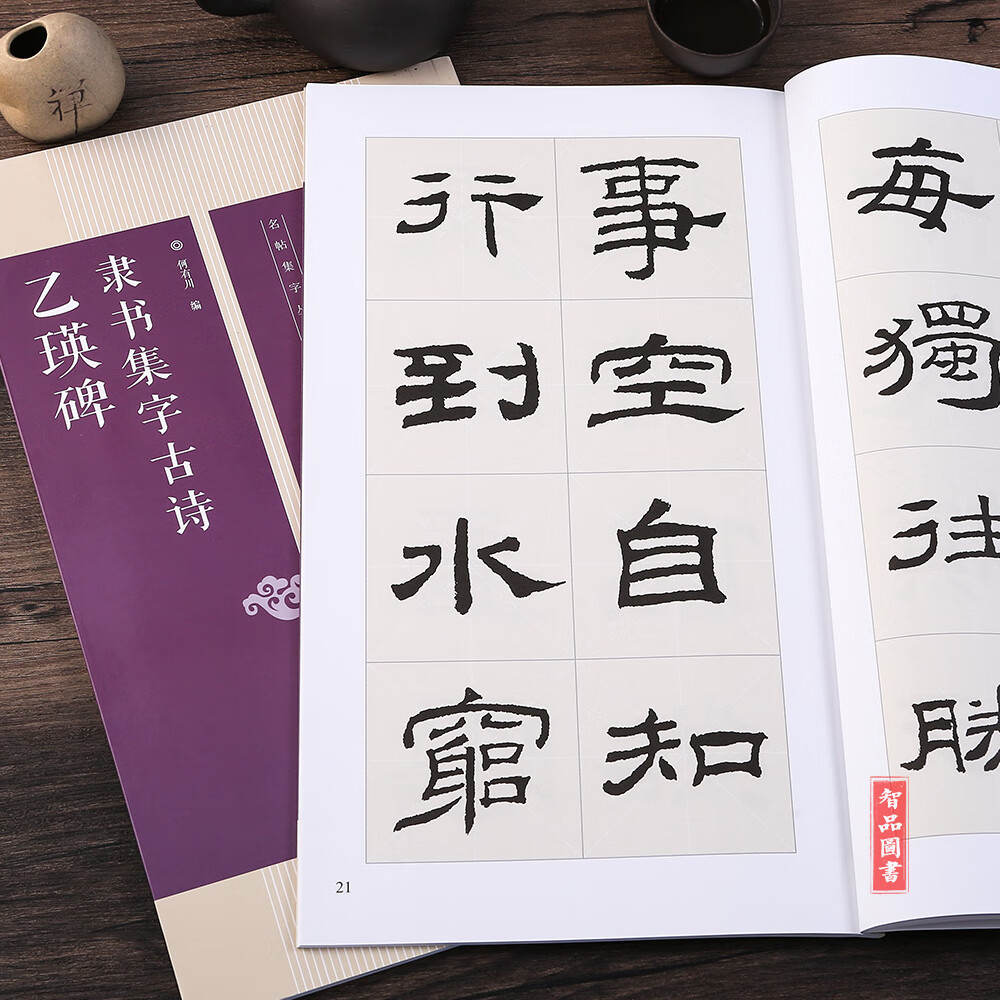 禪
名帖集字
◎何有川 编
隶书集字古诗
乙瑛碑
每獨往勝
事空自知
行到水窮
21
智品圖書